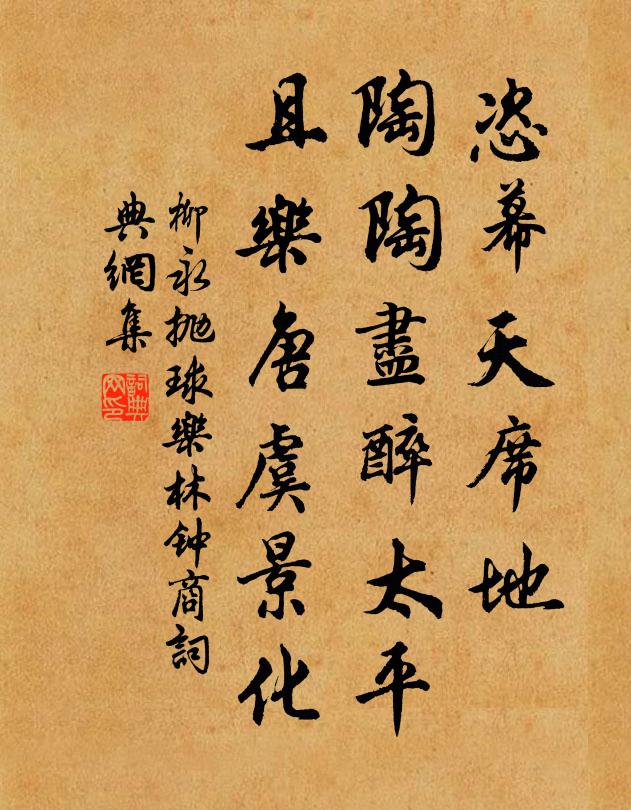 恣幕天席地
陶陶盡醉太平
且樂唐虞景化
柳永拋球樂林钟商詞
典網集
詞典
网印